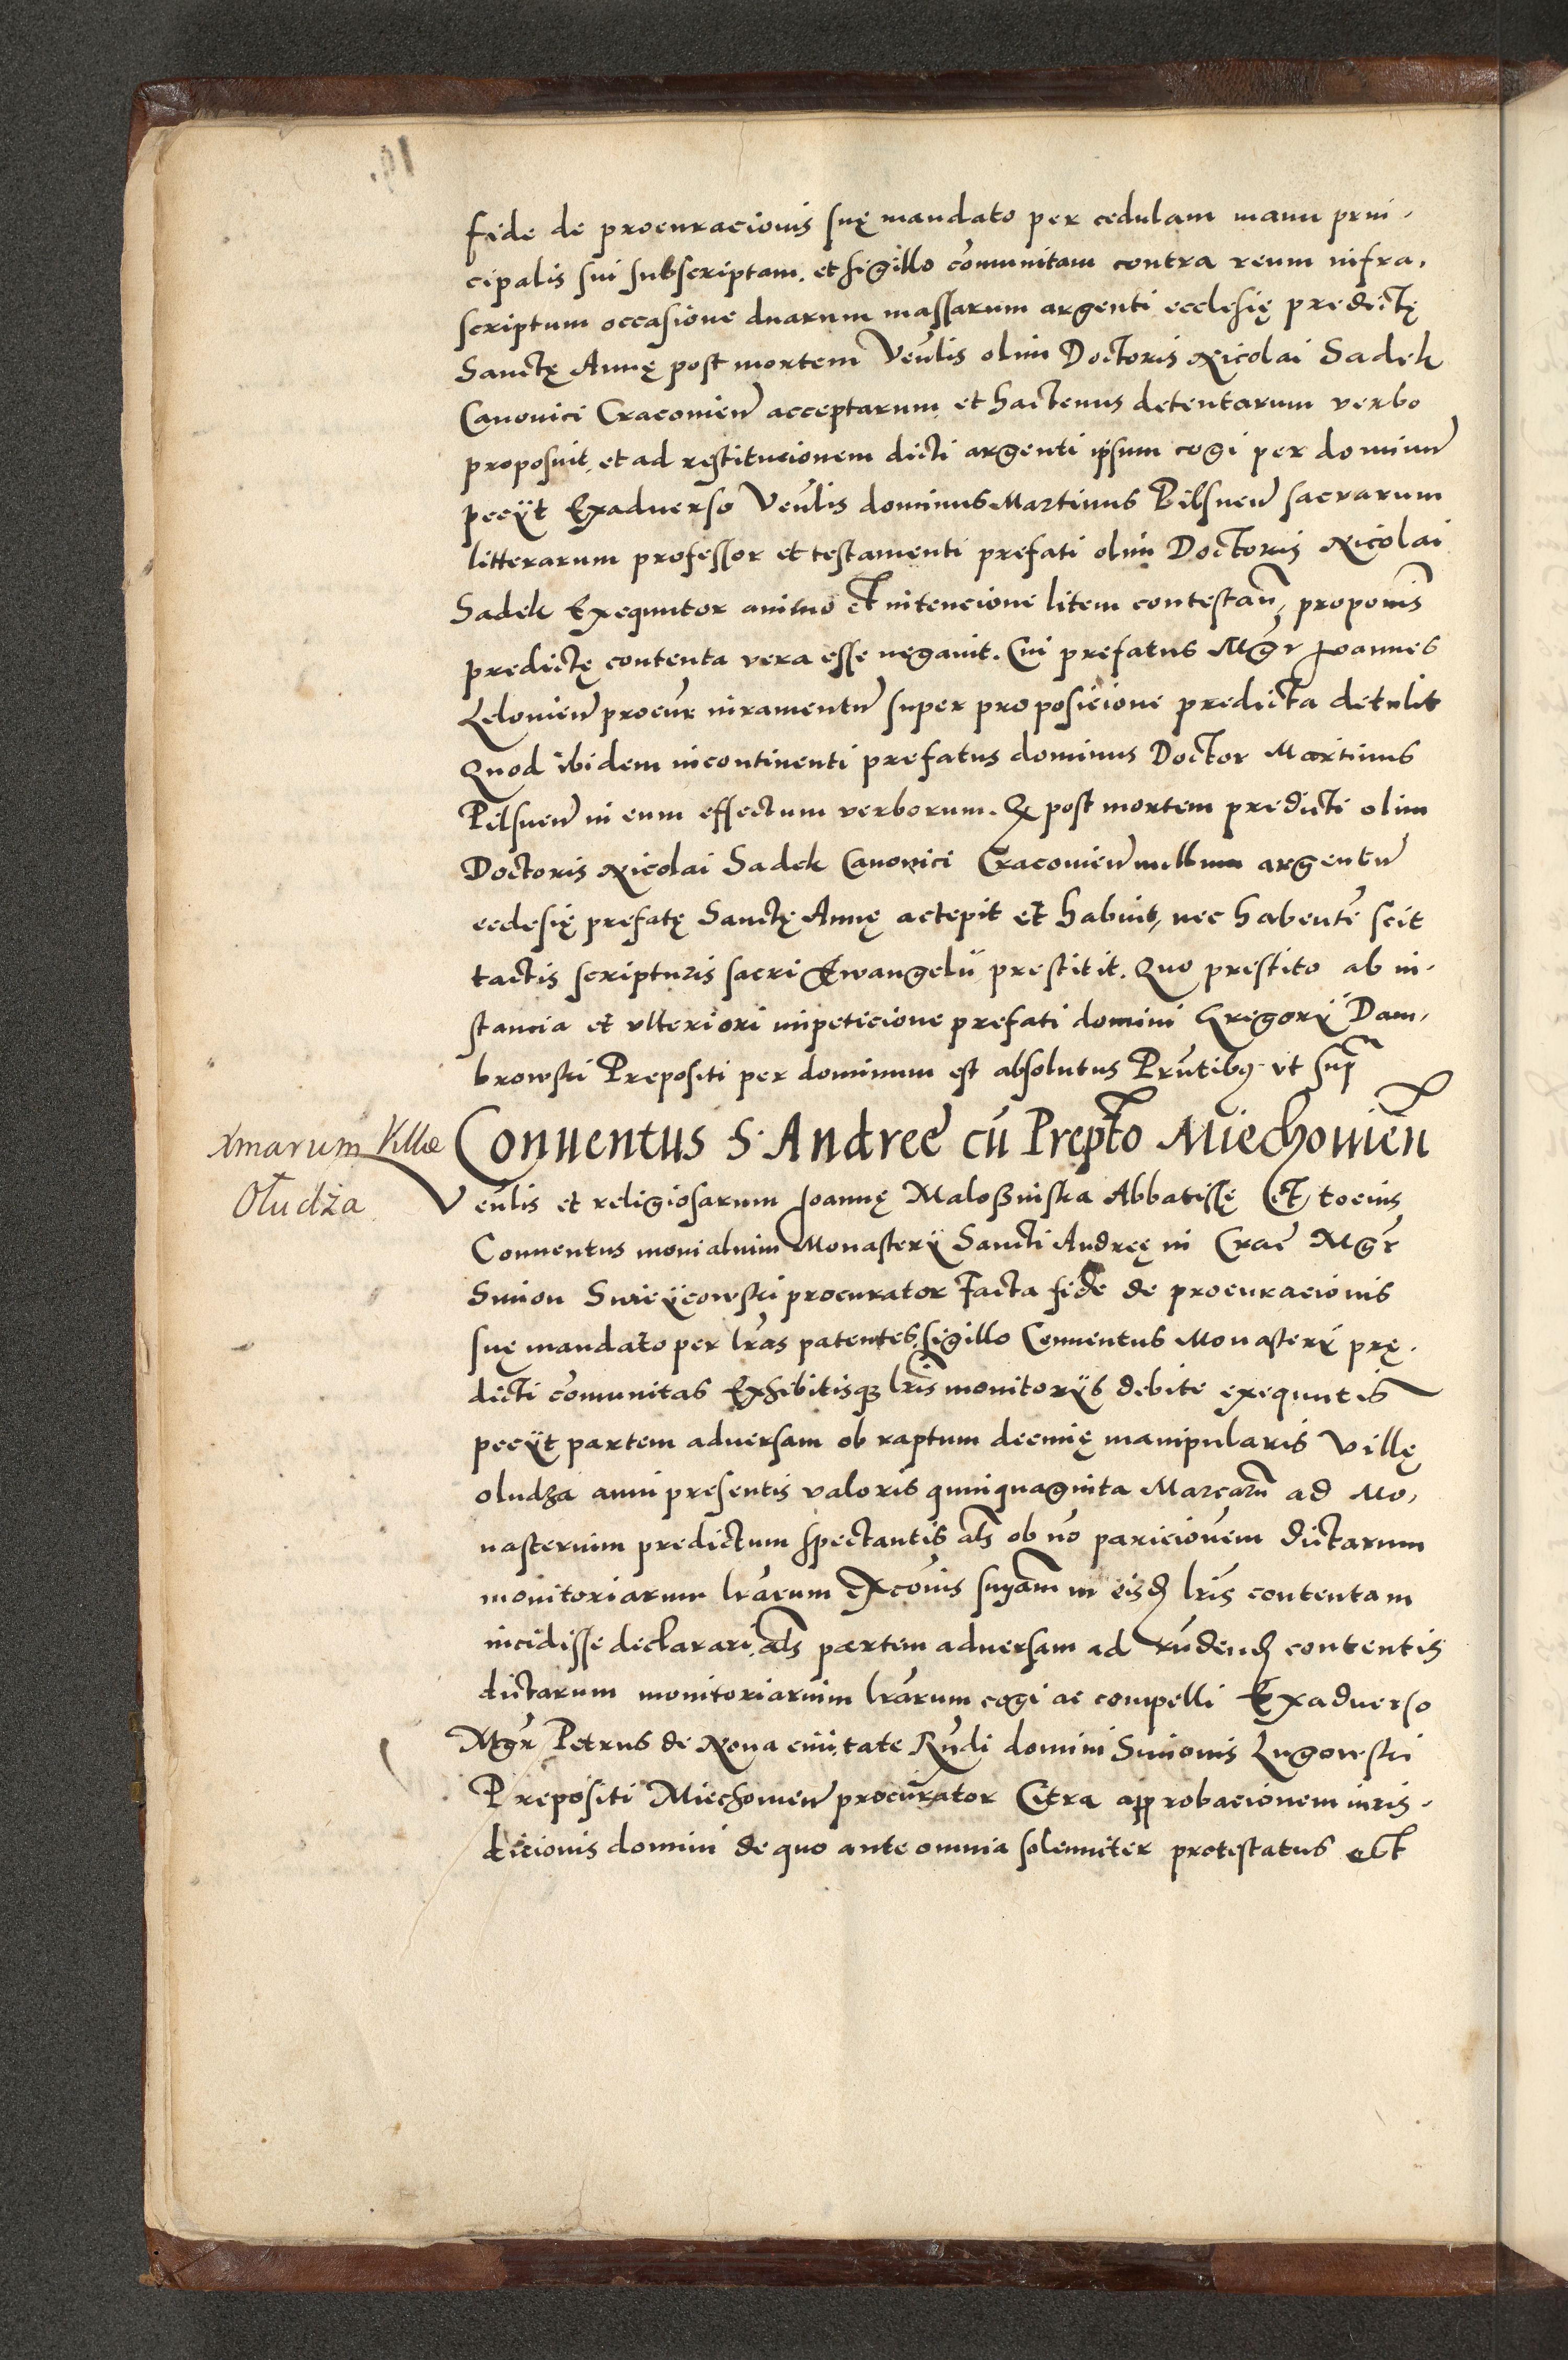 fide de procuracionis suę mandato per cedulam manu prin-
cipalis sui subscriptam. et sigillo cōmunitam contra reum infra,
scriptum occasione duarum massarum argenti ecclesię predictę
Sanctę Annę post mortem Veńlis olim Doctoris Nicolai Sadek
Canonici Cracouień acceptarum et hactenus detentarum verbo
proposuit, et ad restitucionem dicti argenti ipsum cogi per dominū
peciit Exaduerso Veńlis dominus Martinus Pilsneń sacrarum
litterarum professor et testamenti prefati olim Doctoris Nicolai
Sadek Exequutor animo et intencione litem contestań, proponis
predictę contenta vera esse negauit. Cui prefatus Mgr Joannes
Lelouień procur̄ iuramentū super proposicione predicta detulit
Quod ibidem incontinenti prefatus dominus Doctor Martinus
Pilsneń in eum effectum verborum. Q post mortem predicti olim
Doctoris Nicolai Sadek Canonici Cracouień nullum argentū
ecclesię prefatę Sanctę Annę accepit et habuit, nec habentē scit
tactis scripturis sacri Ewangelii prestitit. Quo prestito ab in-
stancia et vlteriori impeticione prefati domini Gregorii Dam,
browski Prepositi per dominum est absolutus Pr̄ntibus vt supra
Conuentus S. Andreę cū Prepto Miechouień
xmarum Villæ
Oludża
Veńlis et religiosarum Joannę Maloßinska Abbatissę et tocius
Conuentus monialium Monasterii Sancti Andreę in Crac̄ Mgr̄
Simon Swieÿcowski procurator Facta fide de procuracionis
suę mandato per lr̄as patentes, sigillo Conuentus Monasterii prę-
dicti cōmunitas Exhibitisq lr̄is monitoriis debite exequutis
peciit partem aduersam ob raptum decimę manipularis villę
oludza anni presentis valoris quinquaginta Marcarū ad Mo,
nasterium predictum spectantis als ob nō paricionem dictarum
monitoriarum lr̄arum excōnis sniam in eisd lr̄is contentam
incidisse declarari, als partem aduersam ad r̄ndend contentis
dictarum monitoriarum lr̄arum cogi ac compelli Exaduerso
Mgr̄ Petrus de Noua ciuitate R̄ndi domini Simonis Lugowski
Prepositi Miechouień procurator Citra approbacionem iuris-
dicionis domini de quo ante omnia solenniter protestatus est